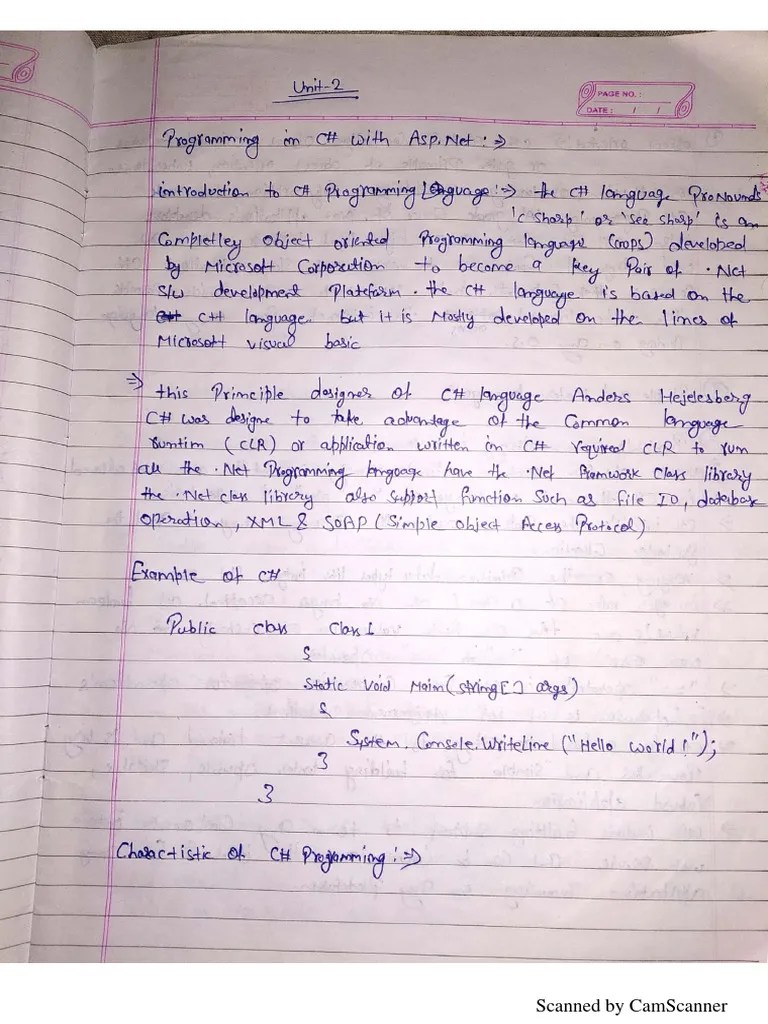 Unit-2
PAGE NO. :
DATE : / /
Programming in C# with Asp.Net : ⇒
introduction to C# Programming Language :⇒ the C# language Pronounds
'c sharp' or 'see sharp' is an
Completley object oriented Programming language (oops) developed
by Microsoft Corporation to become a key Pair of .Net
s/w development Plateform . the C# language is based on the
C# language but it is Mostly developed on the lines of
Microsoft visual basic
⇒ this Principle designer of C# language Anders Hejelesberg
C# was designe to take advantage of the Common language
runtim (CLR) or application written in C# required CLR to run
all the .Net Programming language have the .Net framwork class library
the .Net class library also support function Such as file IO, database
operation, XML & SOAP (Simple object Access Protocol)
Example of C#
Public class Class 1
{
Static void Main (string [] args)
{
System. Console.WriteLine ("Hello world !");
}
}
Charactistic of C# Programming :⇒
Scanned by CamScanner